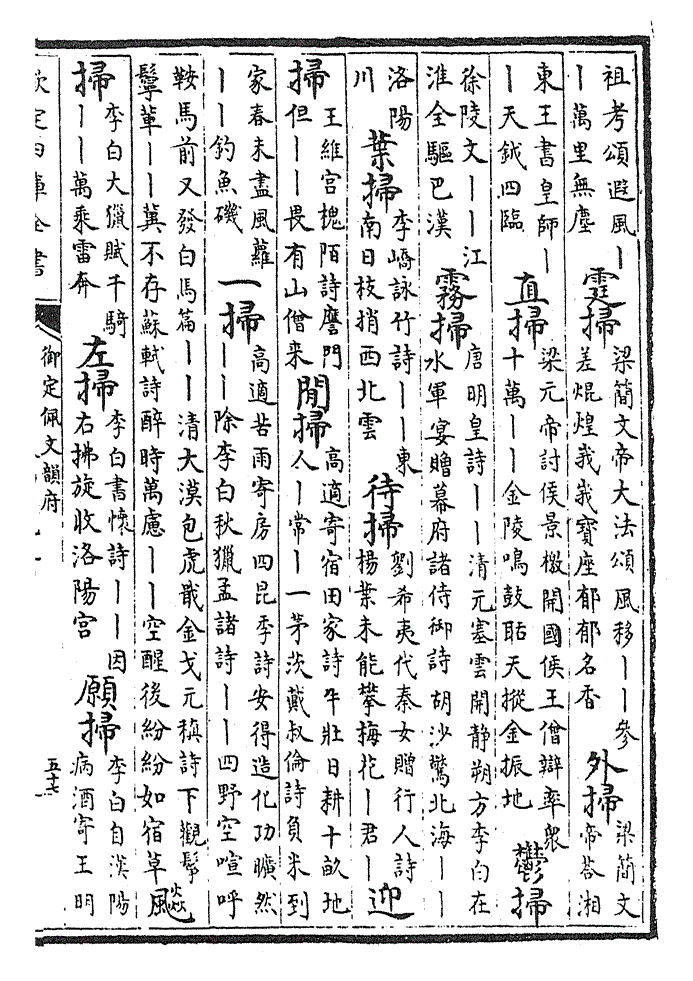 祖考頌避風丨丨萬里無塵 霆掃 梁簡文帝大法頌風移丨丨參差焜煌我我寶座郁郁名香 外掃 梁簡文帝荅湘
東王書皇師丨丨天鉞四臨 直掃 梁元帝討侯景檄開國侯王僧辯率衆十萬丨丨金陵鳴鼓聒天摐金振地 鬱掃
徐陵文丨丨江淮全驅巴漢 霧掃 唐明皇詩丨丨清元塞雲開静朔方李白在水軍宴贈幕府諸侍御詩胡沙驚北海丨丨
洛陽川 葉掃 李嶠詠竹詩丨丨東南日枝捎西北雲 待掃 劉希夷代秦女贈行人詩楊葉未能攀梅花丨君丨 迎
掃 王維宫槐陌詩譍門但丨丨畏有山僧来 閒掃 高適寄宿田家詩牛壯日耕十畝地人丨常丨一茅茨戴叔倫詩負米到
家春未盡風蘿丨丨釣魚磯 一掃 高適苦雨寄房四昆季詩安得造化功曠然丨丨除李白秋獵孟諸詩丨丨四野空喧呼
鞍馬前又發白馬篇丨丨清大漠包虎戢金戈元稹詩下觀髼鬇輩丨丨冀不存蘇軾詩醉時萬慮丨丨空醒後紛紛如宿草 飈
掃 李白大獵賦千騎丨丨萬乘雷奔 左掃 李白書懷詩丨丨因右拂旋收洛陽宫 願掃 李白自漢陽病酒寄王明
欽定四庫全書
御定佩文韻府
五十七